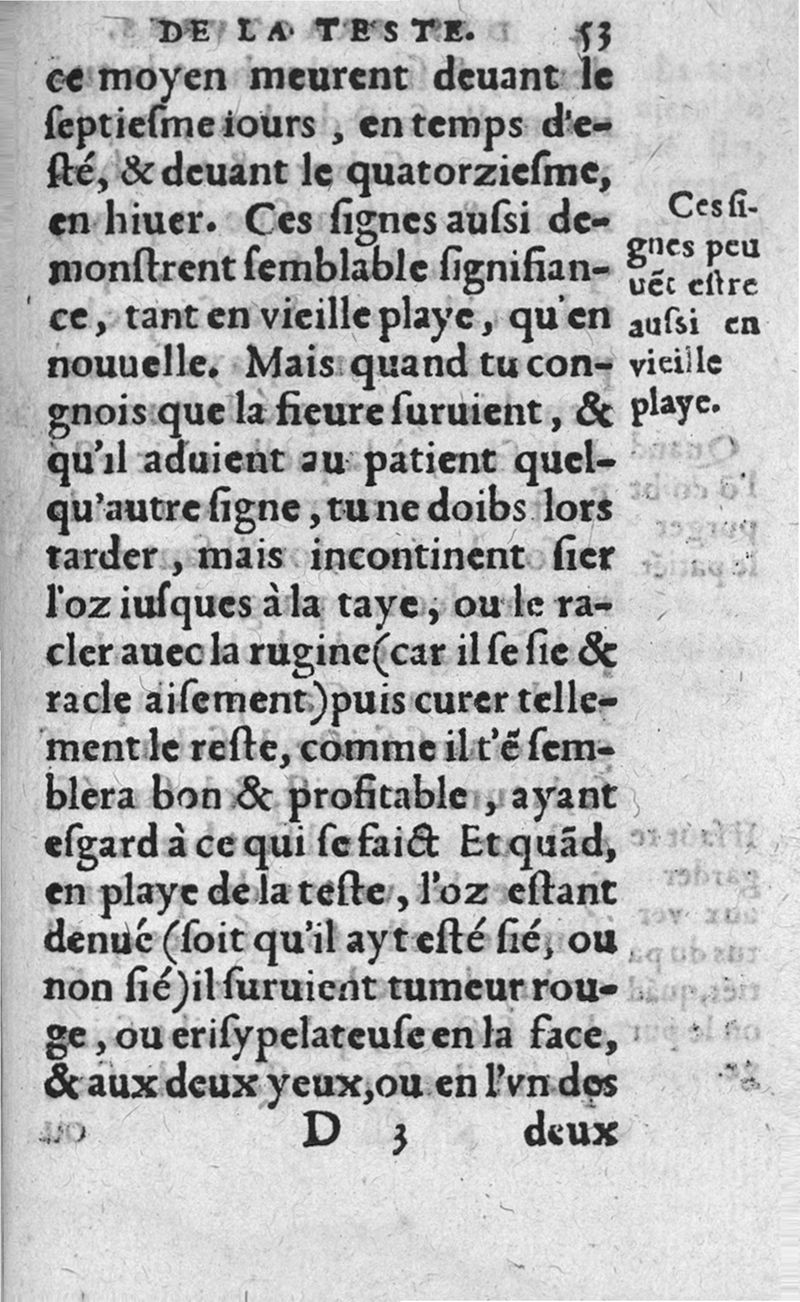 DE LA TESTE. 53
ce moyen meurent deuant le
ſeptieſme iours , en temps d'e-
ſté, & deuant le quatorzieſme,
en hiuer. Ces ſignes auſsi de-
monſtrent ſemblable ſignifian-
ce, tant en vieille playe, qu'en
nouuelle. Mais quand tu con-
gnois que la fieure ſuruient, &
qu'il aduient au patient quel-
qu'autre ſigne, tu ne doibs lors
tarder, mais incontinent ſier
l'oz iuſques à la taye, ou le ra-
cler auec la rugine(car il ſe ſie &
racle aiſement)puis curer telle-
ment le reſte, comme il t'ẽ ſem-
blera bon & profitable , ayant
eſgard à ce qui ſe faict Et quãd,
en playe de la teſte, l'oz eſtant
denué (ſoit qu'il ayt eſté ſié, ou
non ſié)il ſuruient tumeur rou-
ge, ou eriſypelateuſe en la face,
& aux deux yeux,ou en l'vn des
D 3 deux
Ces ſi-
gnes peu
uẽt eſtre
auſsi en
vieille
playe.